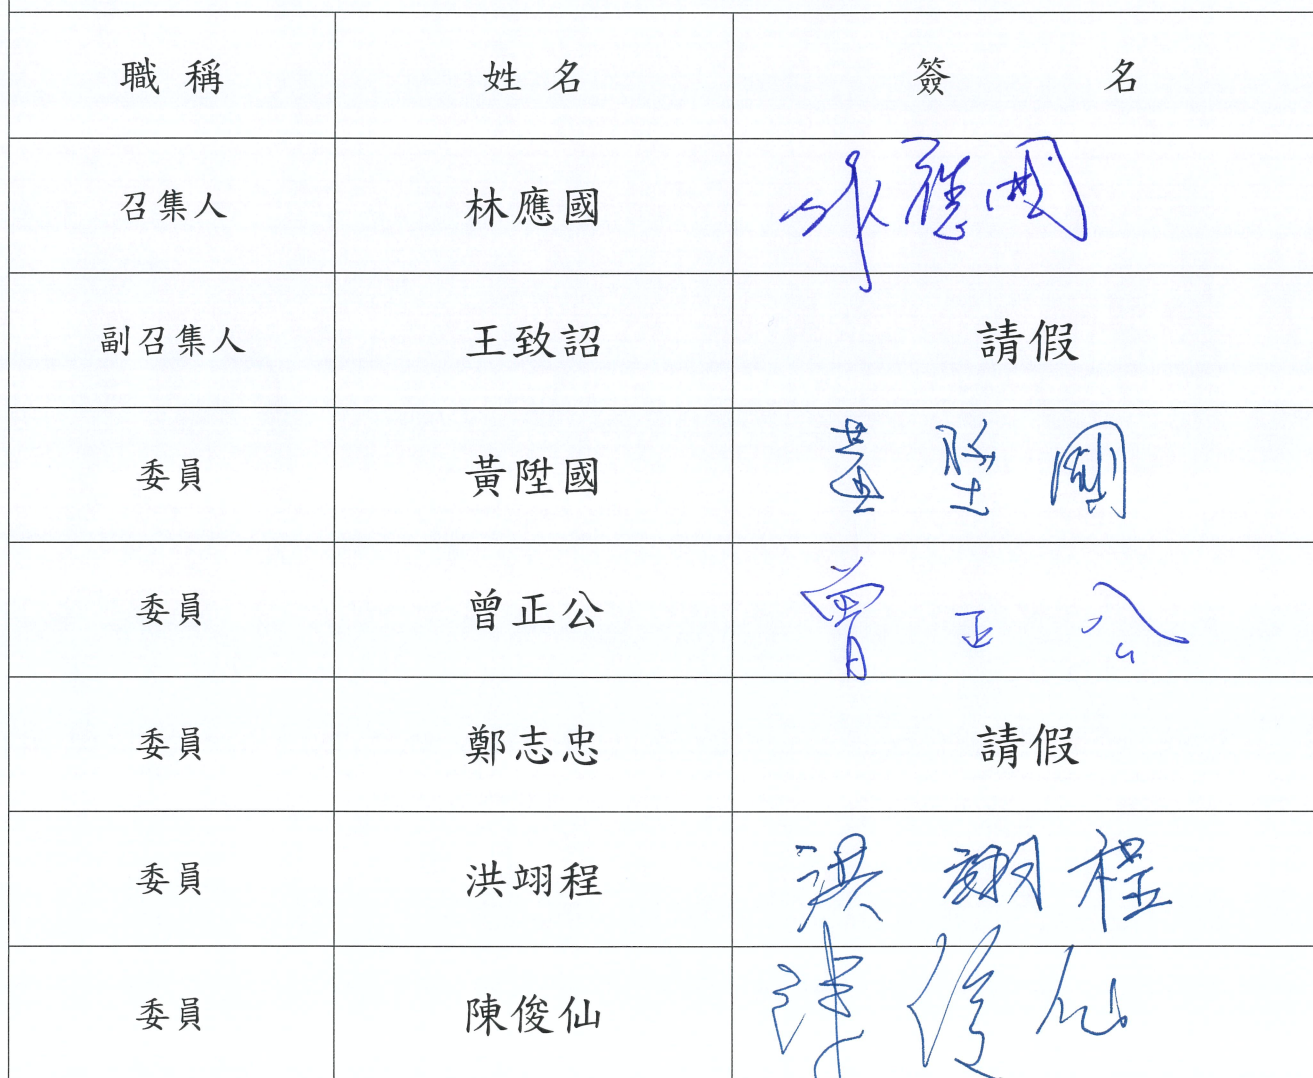 職稱 姓名 簽名
召集人 林應國 林應國
副召集人 王致詔 請假
委員 黃陞國 黃陞國
委員 曾正公 曾正公
委員 鄭志忠 請假
委員 洪翊程 洪翊程
委員 陳俊仙 陳俊仙